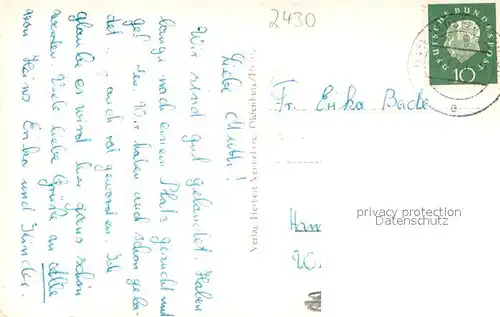 2430
DEUTSCHE BUNDESPOST
10
Liebe Mutti!
Wir sind gut gelandet. Haben
lange nach einem Platz gesucht und
Wir haben auch schon geba-
det, auch rot geworden. Ich
glaube es wird hier ganz schön
werden. Viele liebe Grüße an alle
von Heino Erika und Kinder.
Verlag Herbert
Oldenburg/
Fr. Erika Bade
privacy protection
Datenschutz